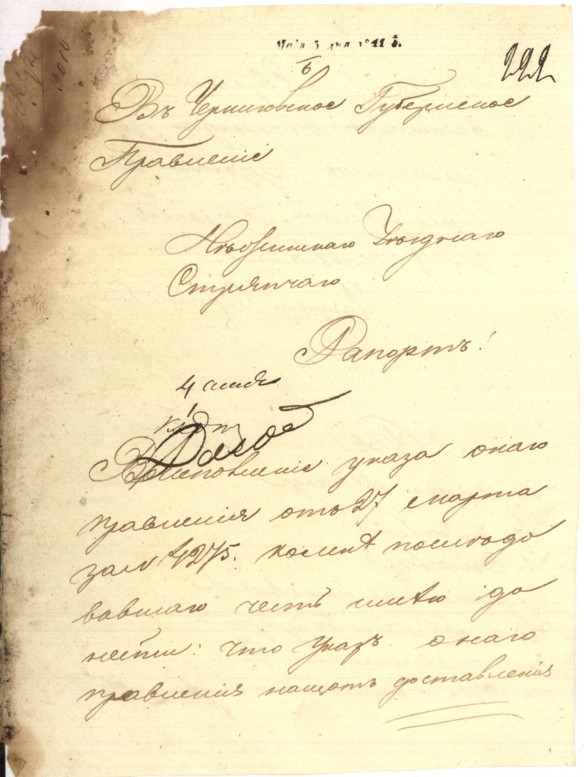 222
Въ Черниговское Губернское
Правленіе
Нѣжинскаго Уѣзднаго
Стряпчаго
Рапортъ!
4 мая
Во исполненіе указа онаго
правленія отъ 27 марта
за № 4275. комнѣ послѣдо
вавшаго честь имѣю до
нести: что Указъ онаго
правленія нащотъ доставленія